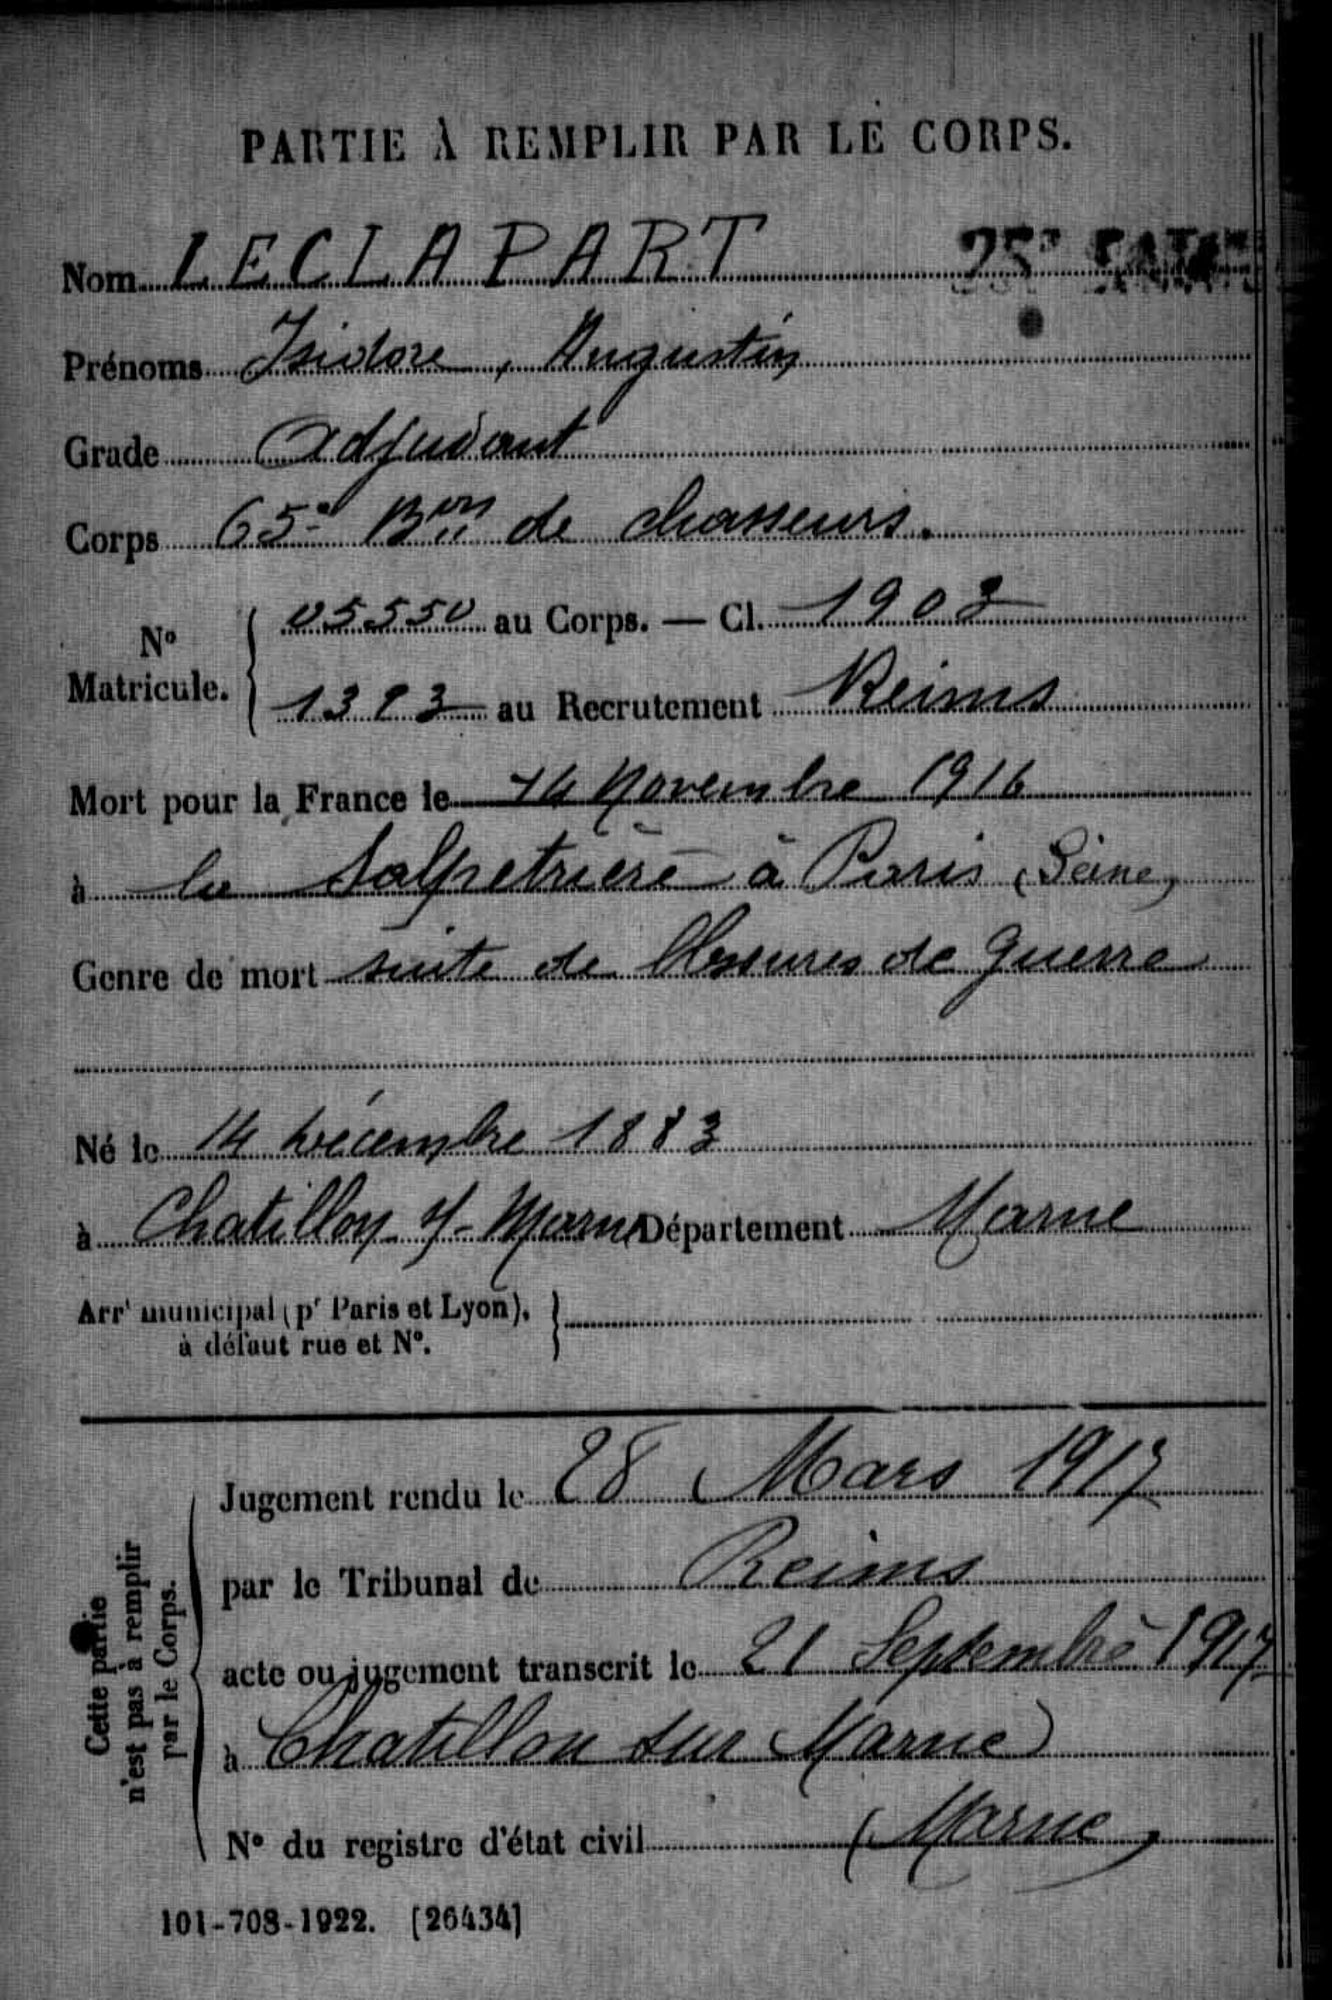 PARTIE À REMPLIR PAR LE CORPS.
Nom LECLAPART 25e
Prénoms Isidore, Augustin
Grade adjudant
Corps 65e Bon de chasseurs.
No Matricule. { 05550 au Corps. — Cl. 1903
1393 au Recrutement Reims
Mort pour la France le 14 Novembre 1916
à la Salpetrière à Paris (Seine)
Genre de mort suite de blessures de guerre
Né le 14 décembre 1883
à Chatillon s/- Marne Département Marne
Arrt municipal (pr Paris et Lyon),
à défaut rue et No.
Cette partie
n'est pas à remplir
par le Corps.
Jugement rendu le 28 Mars 1917
par le Tribunal de Reims
acte ou jugement transcrit le 21 Septembre 1917
à Chatillon sur Marne
No du registre d'état civil (Marne)
101-708-1922. [26434]